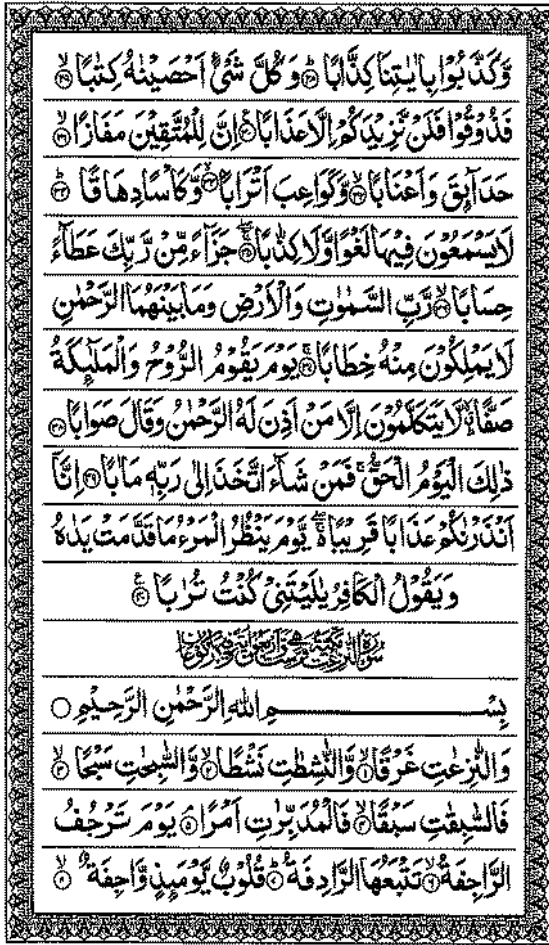 وَّكَذَّبُوْا بِاٰيٰتِنَا كِذَّابًا ﴿٢٨﴾ وَكُلَّ شَيْءٍ اَحْصَيْنٰهُ كِتٰبًا ﴿٢٩﴾
فَذُوْقُوْا فَلَنْ نَّزِيْدَكُمْ اِلَّا عَذَابًا ﴿٣٠﴾ اِنَّ لِلْمُتَّقِيْنَ مَفَازًا ﴿٣١﴾
حَدَآئِقَ وَاَعْنَابًا ﴿٣٢﴾ وَّكَوَاعِبَ اَتْرَابًا ﴿٣٣﴾ وَّكَاْسًا دِهَاقًا ﴿٣٤﴾
لَا يَسْمَعُوْنَ فِيْهَا لَغْوًا وَّلَا كِذّٰبًا ﴿٣٥﴾ جَزَآءً مِّنْ رَّبِّكَ عَطَآءً
حِسَابًا ﴿٣٦﴾ رَّبِّ السَّمٰوٰتِ وَالْاَرْضِ وَمَا بَيْنَهُمَا الرَّحْمٰنِ
لَا يَمْلِكُوْنَ مِنْهُ خِطَابًا ﴿٣٧﴾ يَوْمَ يَقُوْمُ الرُّوْحُ وَالْمَلٰٓئِكَةُ
صَفًّا لَّا يَتَكَلَّمُوْنَ اِلَّا مَنْ اَذِنَ لَهُ الرَّحْمٰنُ وَقَالَ صَوَابًا ﴿٣٨﴾
ذٰلِكَ الْيَوْمُ الْحَقُّ فَمَنْ شَآءَ اتَّخَذَ اِلٰى رَبِّهٖ مَاٰبًا ﴿٣٩﴾ اِنَّآ
اَنْذَرْنٰكُمْ عَذَابًا قَرِيْبًا يَّوْمَ يَنْظُرُ الْمَرْءُ مَا قَدَّمَتْ يَدٰهُ
وَيَقُوْلُ الْكَافِرُ يٰلَيْتَنِيْ كُنْتُ تُرٰبًا ﴿٤٠﴾
سورة النزعت مكية
بِسْمِ اللّٰهِ الرَّحْمٰنِ الرَّحِيْمِ
وَالنّٰزِعٰتِ غَرْقًا ﴿١﴾ وَّالنّٰشِطٰتِ نَشْطًا ﴿٢﴾ وَّالسّٰبِحٰتِ سَبْحًا ﴿٣﴾
فَالسّٰبِقٰتِ سَبْقًا ﴿٤﴾ فَالْمُدَبِّرٰتِ اَمْرًا ﴿٥﴾ يَوْمَ تَرْجُفُ
الرَّاجِفَةُ ﴿٦﴾ تَتْبَعُهَا الرَّادِفَةُ ﴿٧﴾ قُلُوْبٌ يَّوْمَئِذٍ وَّاجِفَةٌ ﴿٨﴾